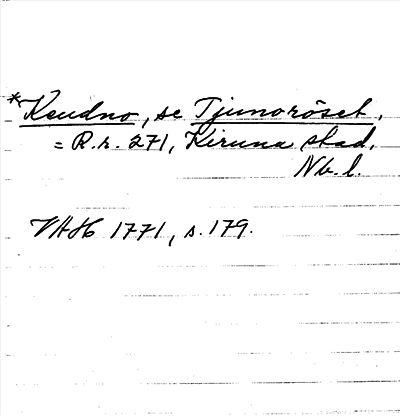 *Keudno, se Tjunoröset,
= R.r. 271, Kiruna stad,
Nb. l.
VAH 1771, s. 179.